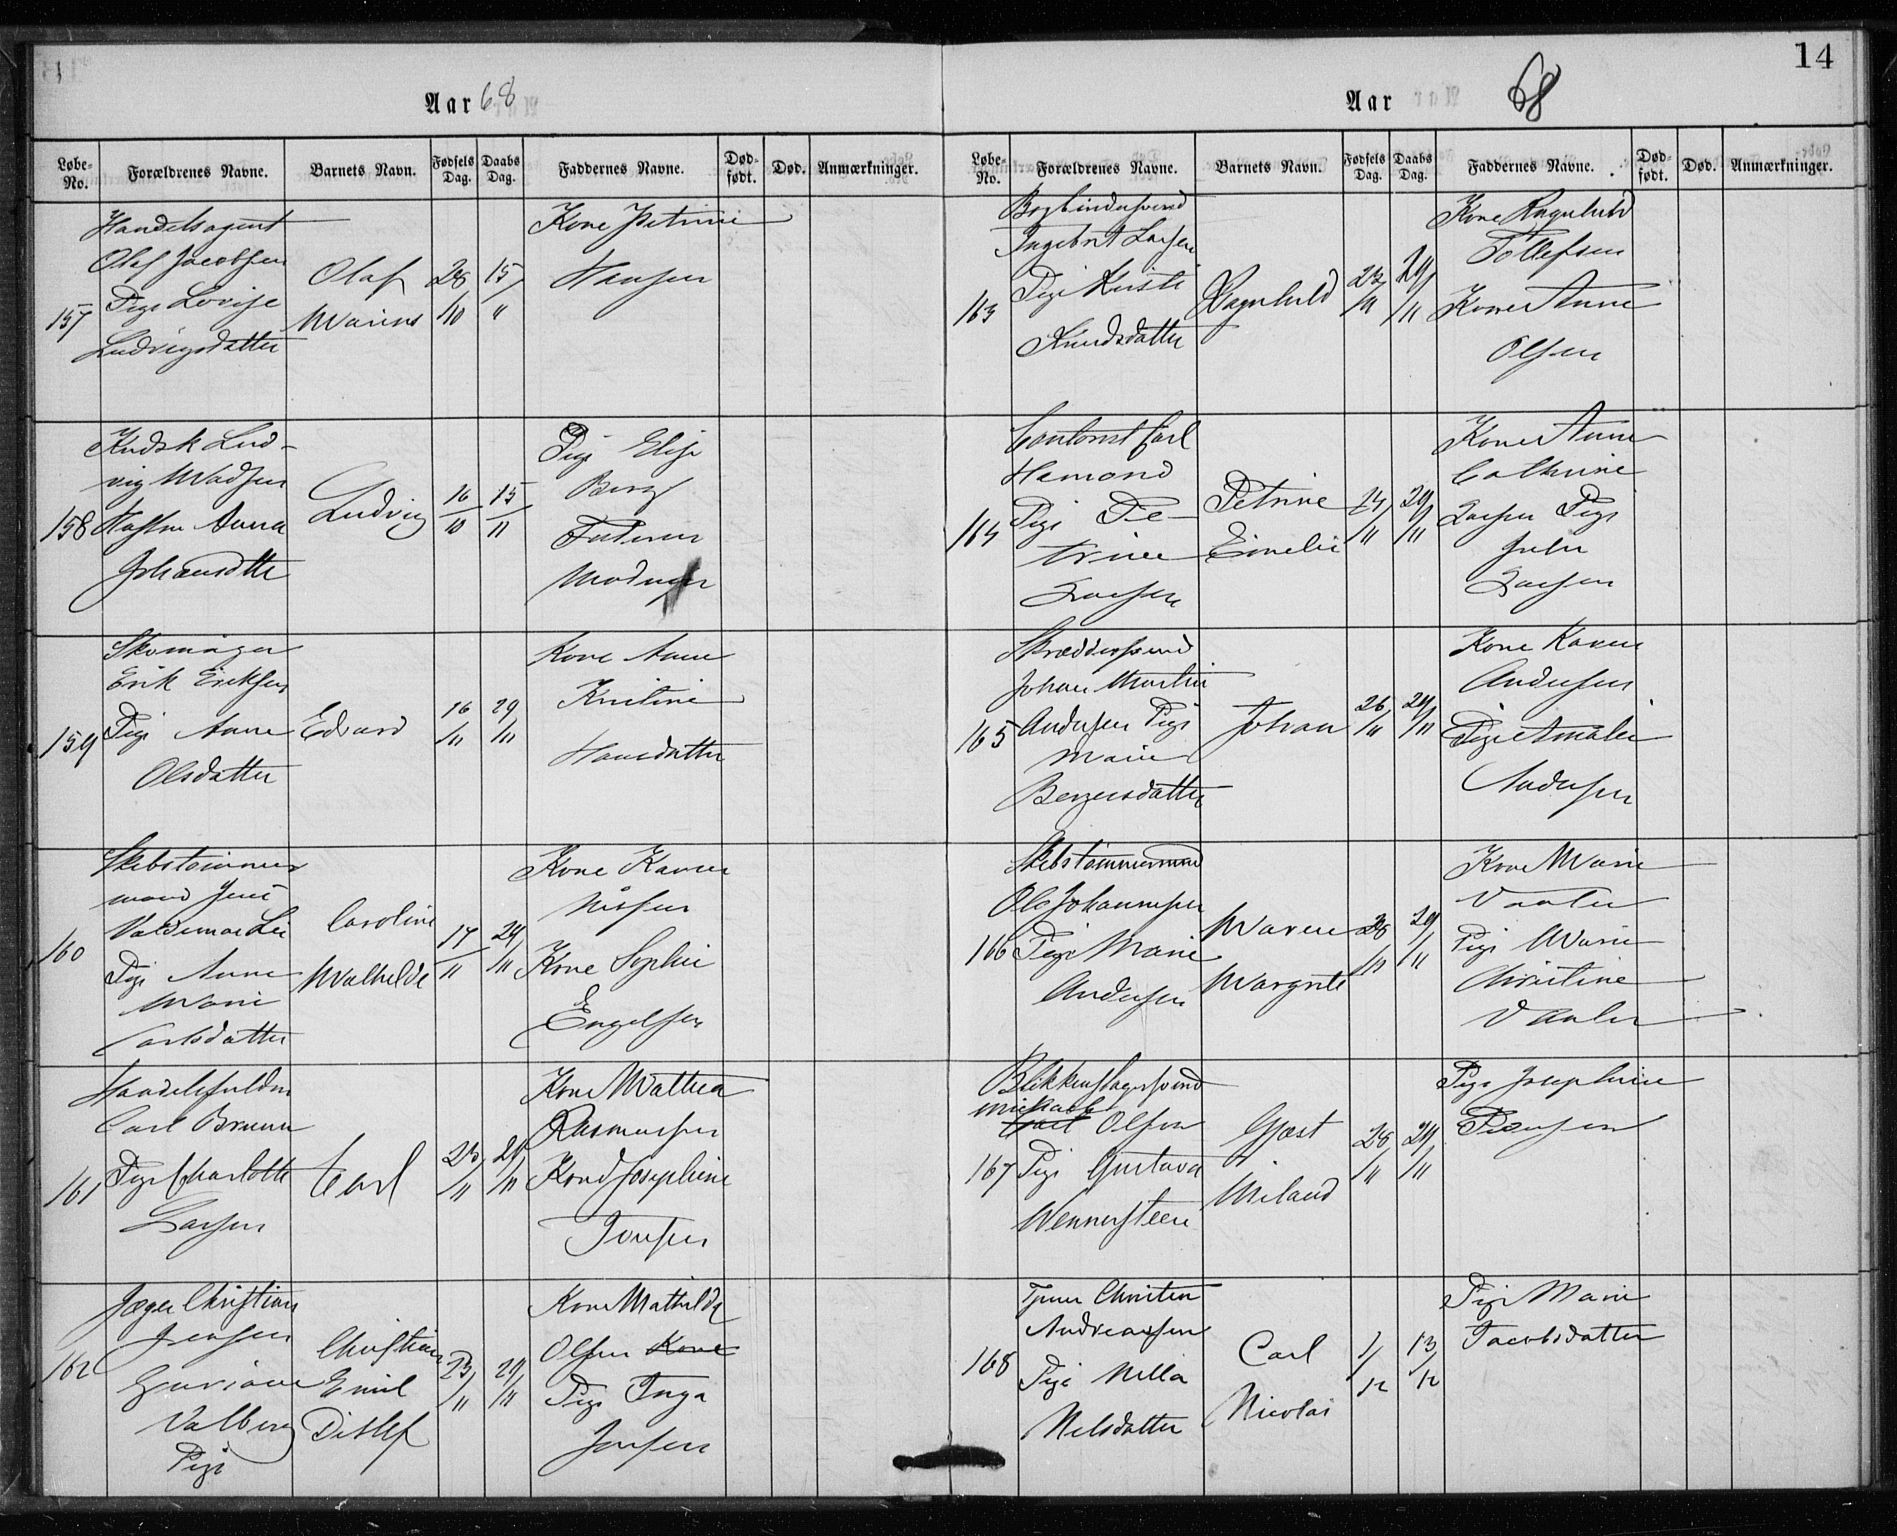 14
Aar 68
Løbe-No. Forældrenes Navne. Barnets Navn. Fødsels Dag. Daabs Dag. Faddernes Navne. Død-født. Død. Anmærkninger.
157
Handelsagent
Olaf Jacobsen
Pige Lovise
Ludvigsdatter
Olaf
Marius
28/10
15/"
Kone Petrine
Hansen
158
Kudsk Lud-
vig Madsen
Anna
Johansdtr
Ludvig
16/10
15/11
Pige Elise
Berg
Faderen
Moderen
159
Skomager
Erik Eriksen
Pige Anne
Olsdatter
Edvard
16/11
29/11
Kone Anne
Kristine
Hansdatter
160
Skibstømmer
mand Jens
Valdemar Lie
Pige Anne
Marie
Carlsdatter
Caroline
Mathilde
17/11
29/11
Kone Karen
Nilsen
Kone Sophie
Engelsen
161
Handelsfuldm
Carl Bruun
Pige Charlotte
Larsen
Carl
23/11
29/11
Kone Mathea
Rasmussen
Kone Josephine
Jonsen
162
Jæger Christian
Jensen
Valberg
Pige
Christian
Emil
Ditlef
23/11
29/11
Kone Mathilde
Olsen Kone
Pige Inga
Jensen
Aar 68
Løbe-No. Forældrenes Navne. Barnets Navn. Fødsels Dag. Daabs Dag. Faddernes Navne. Død-født. Død. Anmærkninger.
163
Bogbindersvend
Ingebret Larsen
Pige Kirsti
Knudsdatter
Ragnhild
23/11
29/11
Kone Ragnhild
Tollefsen
Kone Anne
Olsen
164
Contorist Carl
Hamond
Pige Pe-
trine
Larsen
Petrine
Emelie
24/11
29/11
Kone Anne
Cathrine
Larsen Pige
Julie
Larsen
165
Skræddersvend
Johan Martin
Andersen Pige
Marie
Bergersdatter
Johan
26/11
29/11
Kone Karen
Andersen
Pige Amalie
Andersen
166
Skibstømmermand
Ole Johannesen
Pige Marie
Andersen
Maren
Margrete
28/11
29/11
Kone Marie
Vaaler
Pige Marie
Christine
Vaaler
167
Blikkenslagersvend
Michael
Carl Olsen
Pige Gustava
Wennersteen
Gjæst
Miland
28/11
29/11
Pige Josephine
168
Tjener Christen
Andreassen
Pige Nilla
Nelsdatter
Carl
Nicolai
1/12
13/12
Pige Marie
Jacobsdatter